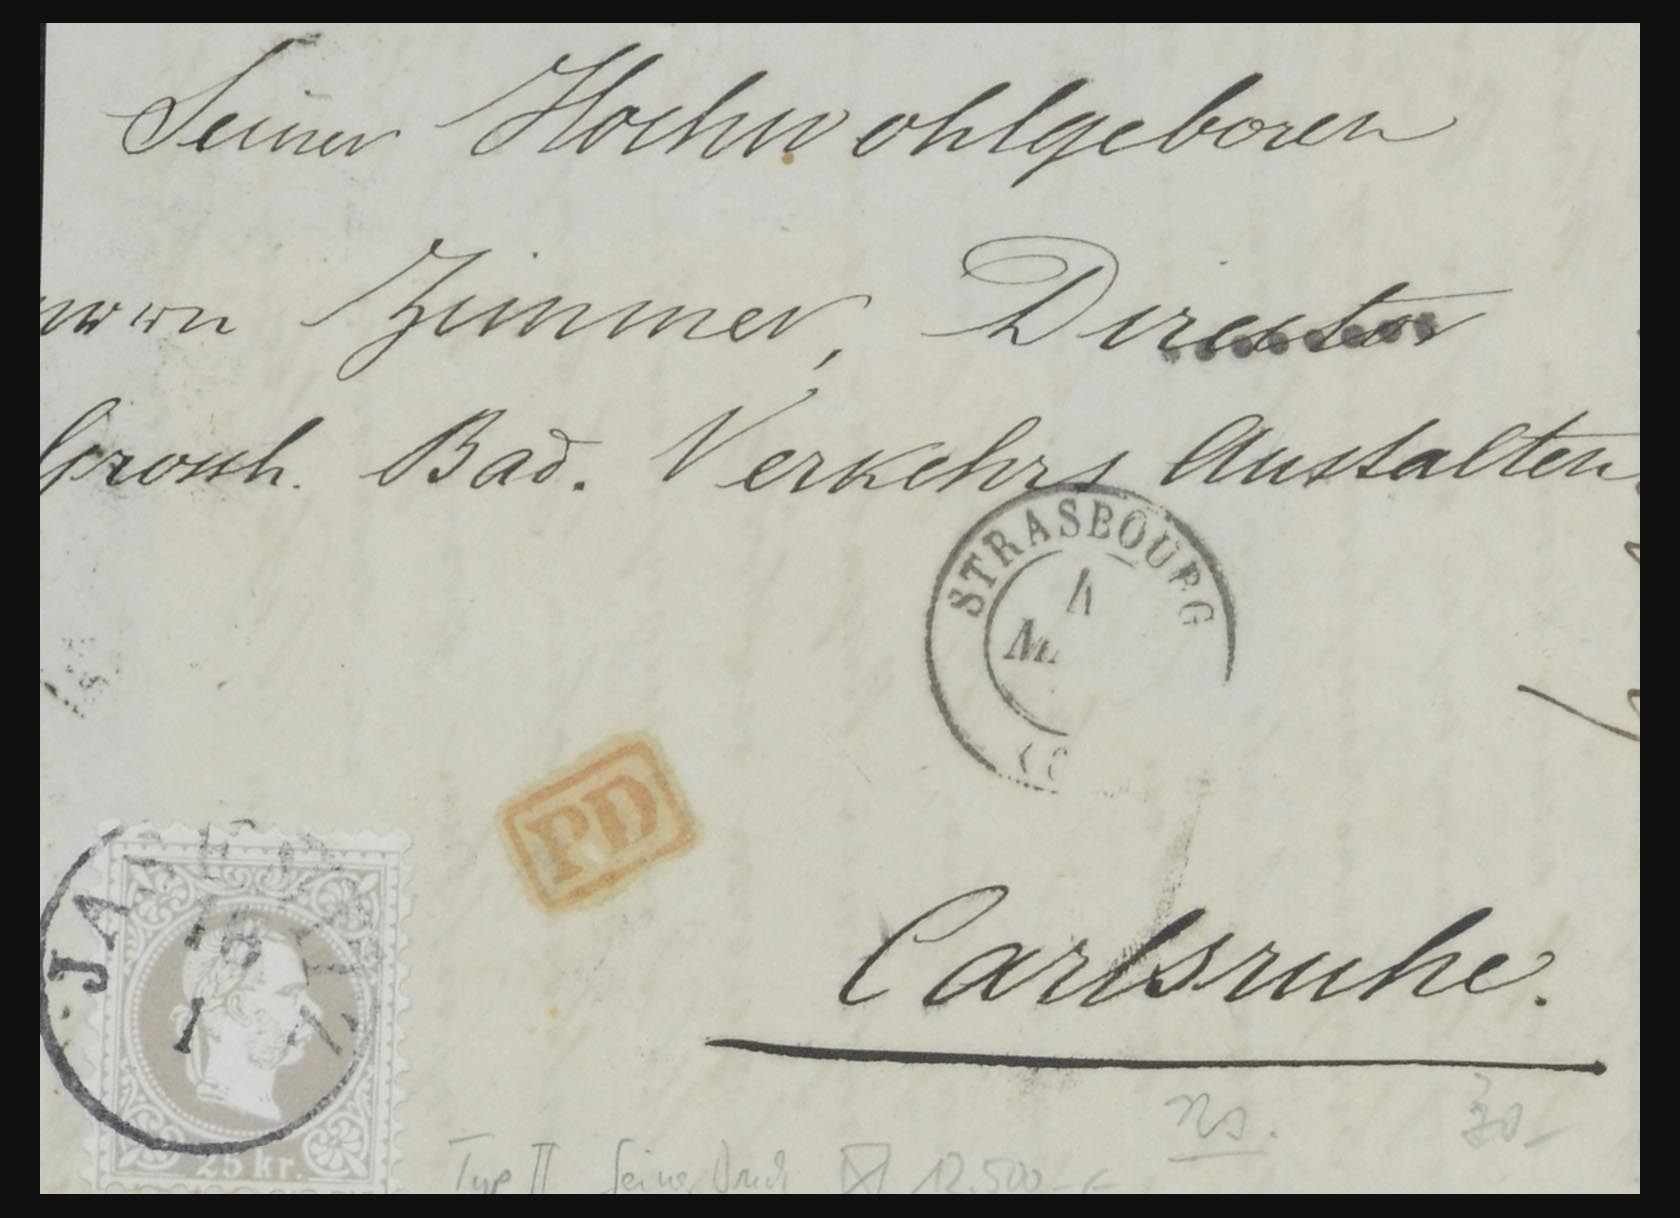 Seiner Hochwohlgeboren
Zimmer, Director
Grossh. Bad. Verkehrs Anstalten
STRASBOURG
4
PD
JA
16
1
25 kr.
Carlsruhe.
Typ II feiner Druck 12.500